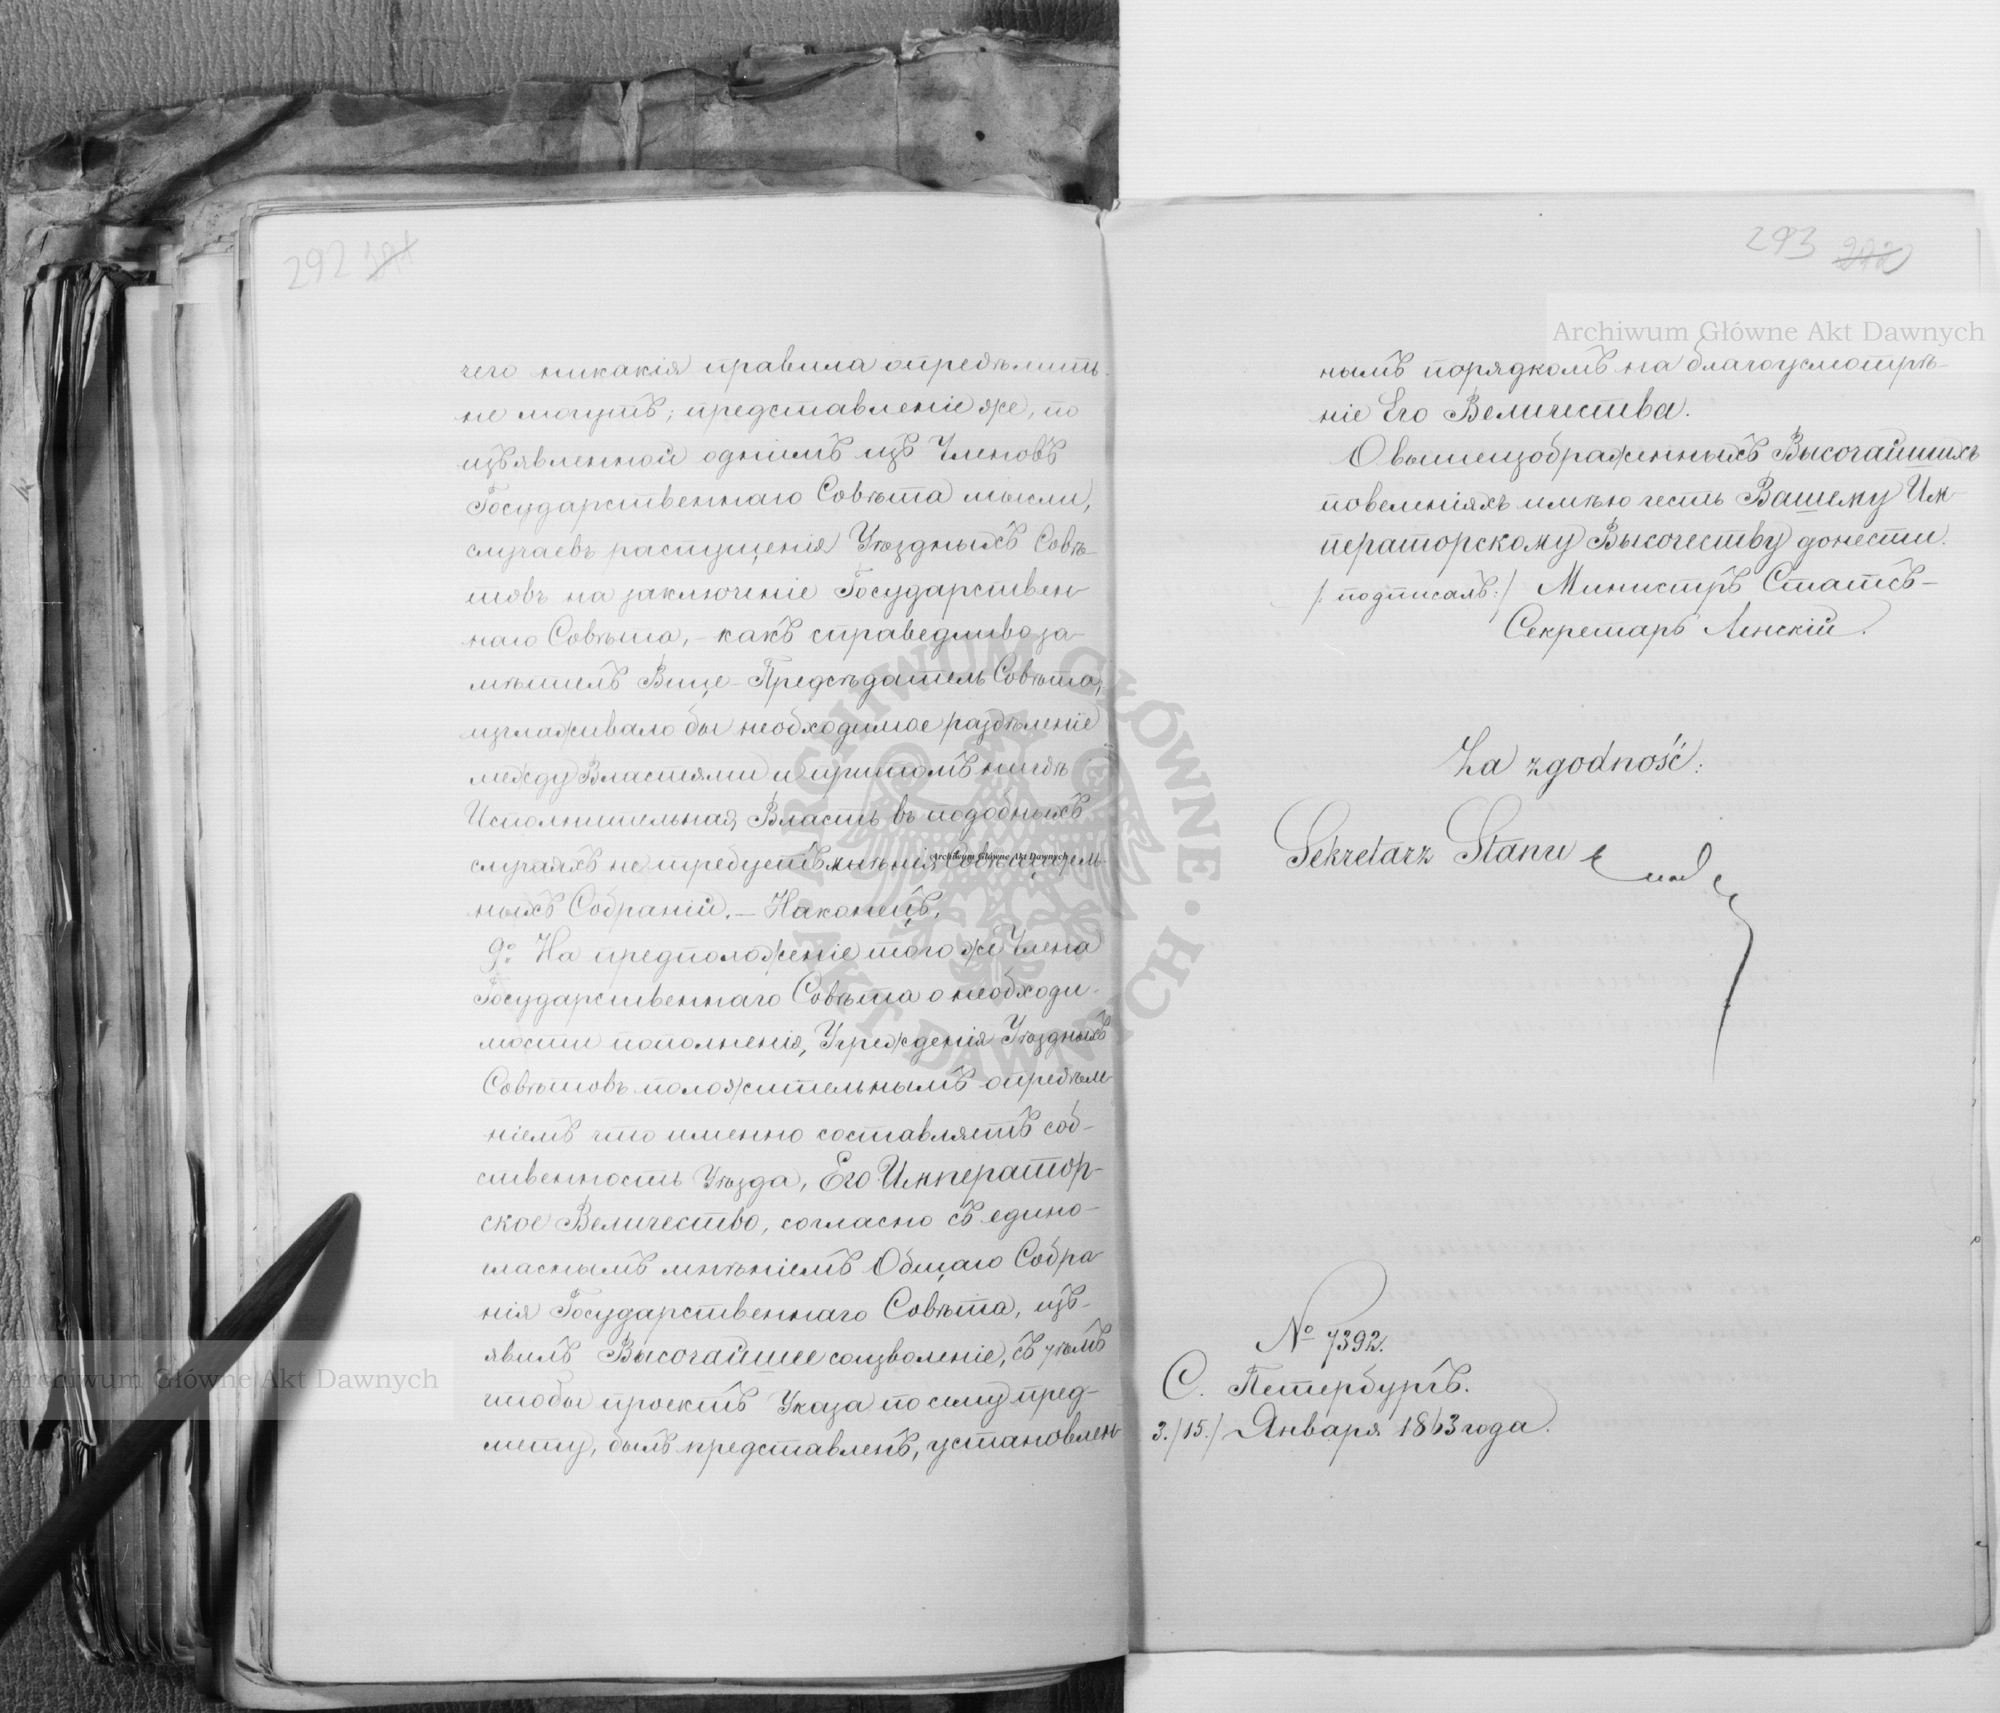 292
чего никакія правила опредѣлить
не могутъ; представленіе же, по
изъявленной однимъ изъ Членовъ
Государственнаго Совѣта мысли,
случаевъ распущенія Уѣздныхъ Совѣ-
товъ на заключеніе Государствен-
наго Совѣта, - какъ справедливо за-
мѣтилъ Вице-Предсѣдатель Совѣта,
изглаживало бы необходимое раздѣленіе
между Властями и притомъ нигдѣ
Исполнительная Власть въ подобныхъ
случаяхъ не требуетъ мнѣнія Совѣщатель-
ныхъ Собраній. — Наконецъ,
9º На предположеніе того же Члена
Государственнаго Совѣта о необходи-
мости пополненія, Учрежденія Уѣздныхъ
Совѣтовъ положительнымъ опредѣле-
ніемъ что именно составляетъ соб-
ственность Уѣзда, Его Император-
ское Величество, согласно съ едино-
гласнымъ мнѣніемъ Общаго Собра-
нія Государственнаго Совѣта, изъ-
явилъ Высочайшее соизволеніе, съ тѣмъ
чтобы проектъ Указа по сему пред-
мету, былъ представленъ, установлен-
293 292
нымъ порядкомъ на благоусмотрѣ-
ніе Его Величества.
О вышеизображенныхъ Высочайшихъ
повеленіяхъ имѣю честь Вашему Им-
ператорскому Высочеству донести.
/: подписалъ:/ Министръ Статсъ-
Секретарь Ленскій.
Za zgodność:
Sekretarz Stanu
№ 7392.
С. Петербургъ.
3./15./ Января 1863 года.
Archiwum Główne Akt Dawnych
Archiwum Główne Akt Dawnych
Archiwum Główne Akt Dawnych
ARCHIWUM GŁÓWNE AKT DAWNYCH